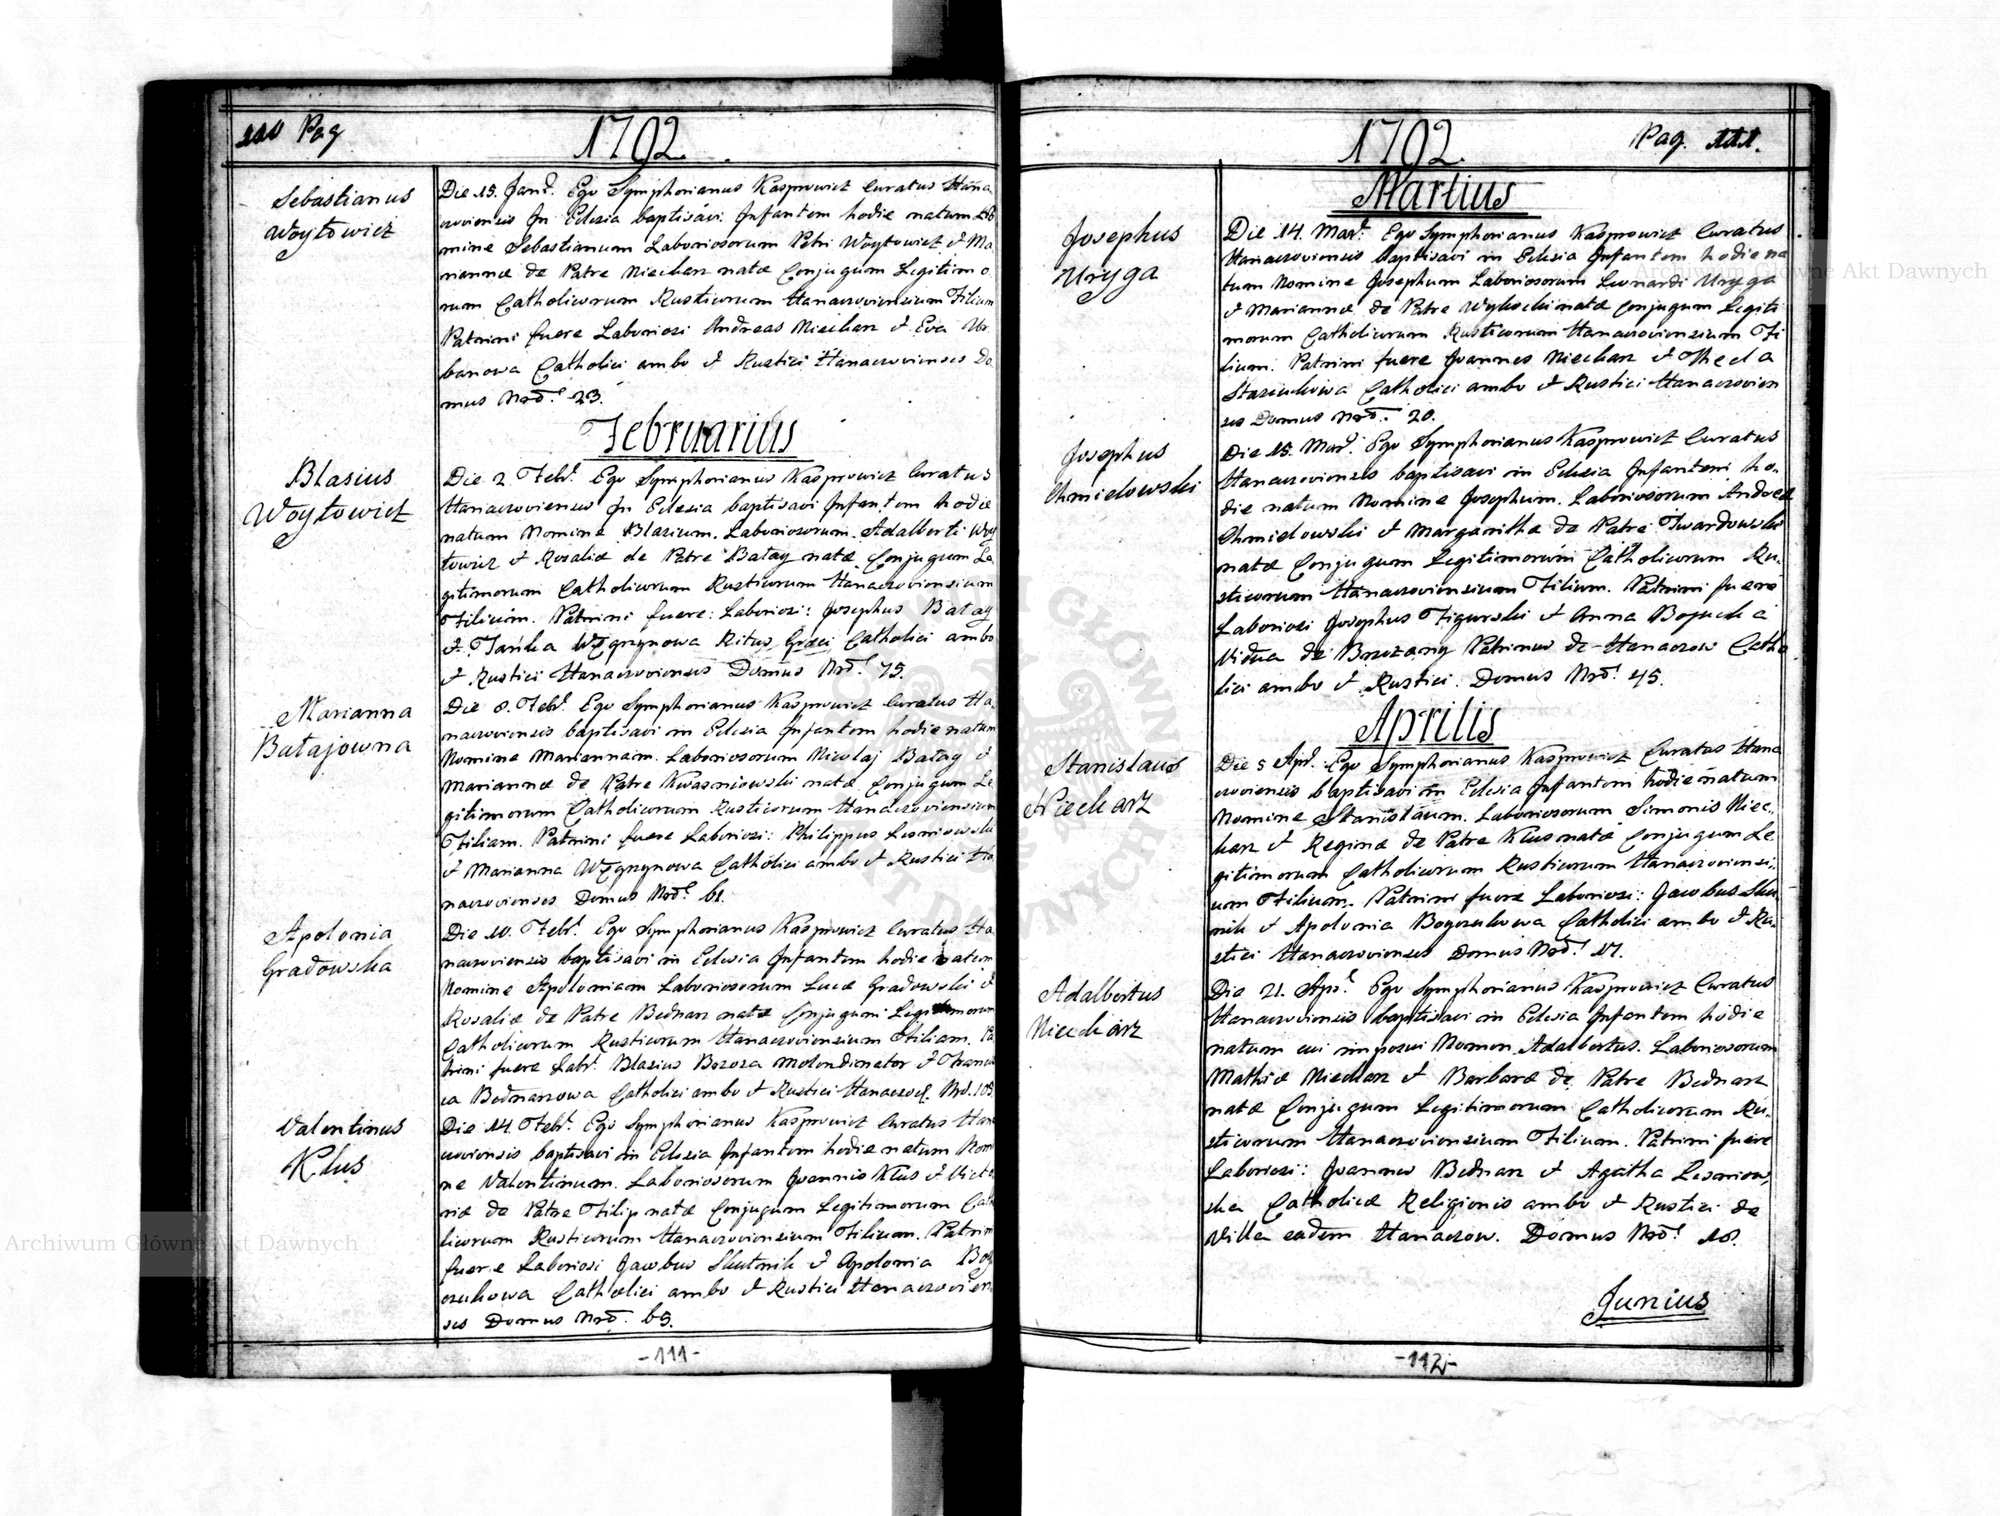 110 Pag
1792.
Sebastianus
Woytowicz
Die 15. Janr. Ego Symphorianus Kasprowicz Curatus Hana
czoviensis In Eclesia baptisavi Infantem hodie natum No
mine Sebastianum Laboriosorum Petri Woytowicz et Ma
riannæ de Patre Niecharz natæ Conjugum Legitimo
rum Catholicorum Rusticorum Hanaczoviensium Filium
Patrini fuere Laboriosi Andreas Niecharz et Eva Ur
banowa Catholici ambo et Rustici Hanaczovienses Do
mus Nro 23.
Februarius
Blasius
Woytowicz
Die 2. Febr. Ego Symphorianus Kasprowicz Curatus
Hanaczoviensis In Eclesia baptisavi Infantem hodie
natum Nomine Blasium. Laboriosorum. Adalberti Woy
towicz et Rosaliæ de Patre Batay natæ Conjugum Le
gitimorum Catholicorum Rusticorum Hanaczoviensium
Filium. Patrini fuere: Laboriosi: Josephus Batay
et Tańka Węgrzynowa Ritus Græci Catholici ambo
et Rustici Hanaczovienses Domus Nro 75.
Marianna
Batajowna
Die 8. Febr. Ego Symphorianus Kasprowicz Curatus Ha
naczoviensis baptisavi in Eclesia Infantem hodie natam
Nomine Mariannam. Laboriosorum Nicolaj Batay et
Mariannæ de Patre Kwasniowski natæ Conjugum Le
gitimorum Catholicorum Rusticorum Hanaczoviensium
Filiam. Patrini fuere Laboriosi: Philippus Lesniowski
et Marianna Węgrzynowa Catholici ambo et Rustici Ha
naczovienses Domus Nro 61.
Apolonia
Gradowska
Die 10. Febr. Ego Symphorianus Kasprowicz Curatus Ha
naczoviensis baptisavi in Eclesia Infantem hodie natam
Nomine Apoloniam Laboriosorum Lucæ Gradowski et
Rosaliæ de Patre Bednarz natæ Conjugum Legitimorum
Catholicorum Rusticorum Hanaczoviensium Filiam. Pa
trini fuere Labr. Blasius Brzoza Molendinator et Franciś
ca Bednarzowa Catholici ambo et Rustici Hanaczov. Nro. 103
Valentinus
Klus
Die 14. Febr. Ego Symphorianus Kasprowicz Curatus Hana
czoviensis baptisavi in Eclesia Infantem hodie natum Nomi
ne Valentinum. Laboriosorum Joannis Klus et Victo
riæ de Patre Filip natæ Conjugum Legitimorum Catho
licorum Rusticorum Hanaczoviensium Filium. Patrini
fuere Laboriosi Jacobus Skutnik et Apolonia Bog
czukowa Catholici ambo et Rustici Hanaczovien
ses Domus Nro. 65.
-111-
1792.
Pag. 111.
Martius
Josephus
Uryga
Die 14. Mar. Ego Symphorianus Kasprowicz Curatus
Hanaczoviensis Baptisavi in Eclesia Infantem hodie na
tum Nomine Josephum Laboriosorum Leonardi Uryga
et Mariannæ de Patre Wysocki natæ Conjugum Legiti
morum Catholicorum Rusticorum Hanaczoviensium Fi
lium. Patrini fuere Joannes Niecharz et Thecla
Staziukowa Catholici ambo et Rustici Hanaczovien
ses Domus Nro. 20.
Josephus
Chmielowski
Die 15. Mar. Ego Symphorianus Kasprowicz Curatus
Hanaczoviensis baptisavi in Eclesia Infantem ho-
die natum Nomine Josephum. Laboriosorum Andreæ
Chmielowski et Margarithæ de Patre Twardowski
natæ Conjugum Legitimorum Catholicorum Ru-
sticorum Hanaczoviensium Filium. Patrini fuere
Laboriosi Josephus Figurski et Anna Bojucka
Vidua de Brzezany Patrinus de Hanaczow Catho
lici ambo et Rustici. Domus Nro. 45.
Aprilis
Stanislaus
Niecharz
Die 5 Apr. Ego Symphorianus Kasprowicz Curatus Hana
czoviensis baptisavi in Eclesia Infantem hodie natum
Nomine Stanislaum. Laboriosorum Simonis Niec-
harz et Reginæ de Patre Klus natæ Conjugum Le
gitimorum Catholicorum Rusticorum Hanaczoviensi-
um Filium. Patrini fuere Laboriosi: Jacobus Skut
nik et Apolonia Bogczukowa Catholici ambo et Ru-
stici Hanaczovienses Domus Nro. 17.
Adalbertus
Niecharz
Die 21. Apr. Ego Symphorianus Kasprowicz Curatus
Hanaczoviensis baptisavi in Eclesia Infantem hodie
natum cui imposui Nomen Adalbertus. Laboriosorum
Mathiæ Niecharz et Barbaræ de Patre Bednarz
natæ Conjugum Legitimorum Catholicorum Ru-
sticorum Hanaczoviensium Filium. Patrini fuere
Laboriosi: Joannes Bednarz et Agatha Lesniow
ska Catholicæ Religionis ambo et Rustici de
Villa eadem Hanaczow. Domus Nro. 18.
Junius
-112-
Archiwum Główne Akt Dawnych
Archiwum Główne Akt Dawnych